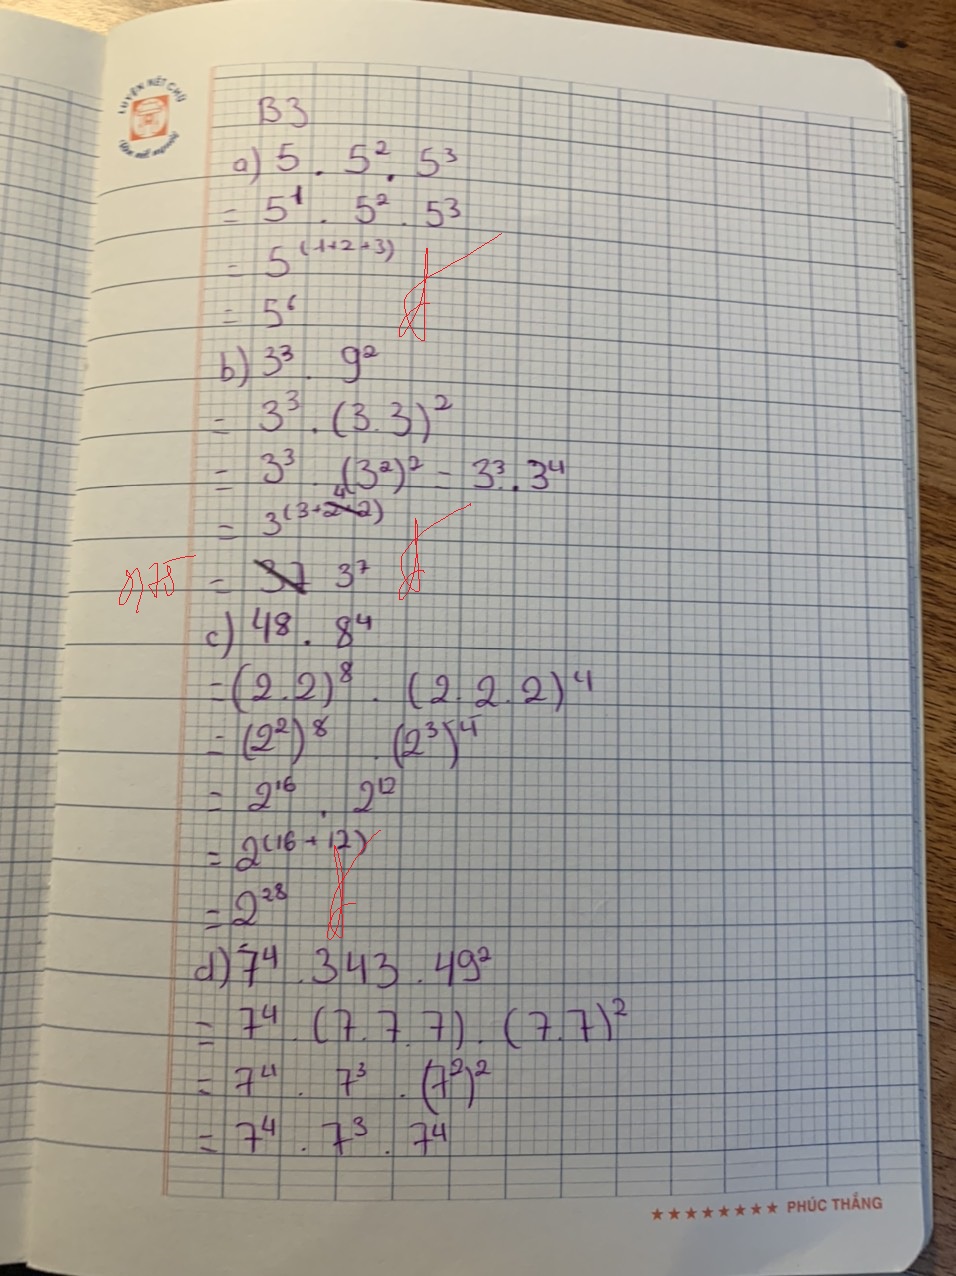 LUYỆN NÉT CHỮ
B3
a) 5 . 5² . 5³
= 5¹ . 5² . 5³
= 5⁽¹⁺²⁺³⁾
= 5⁶
b) 3³ . 9²
= 3³ . (3.3)²
= 3³ . (3²)² = 3³ . 3⁴
4
= 3⁽³⁺²·²⁾
0,75
= 37 3⁷
c) 48 . 8⁴
= (2.2)⁸ . (2.2.2)⁴
= (2²)⁸ . (2³)⁴
= 2¹⁶ . 2¹²
= 2⁽¹⁶⁺¹²⁾
= 2²⁸
d) 7⁴ . 343 . 49²
= 7⁴ . (7.7.7) . (7.7)²
= 7⁴ . 7³ . (7²)²
= 7⁴ . 7³ . 7⁴
★★★★★★★★ PHÚC THẮNG